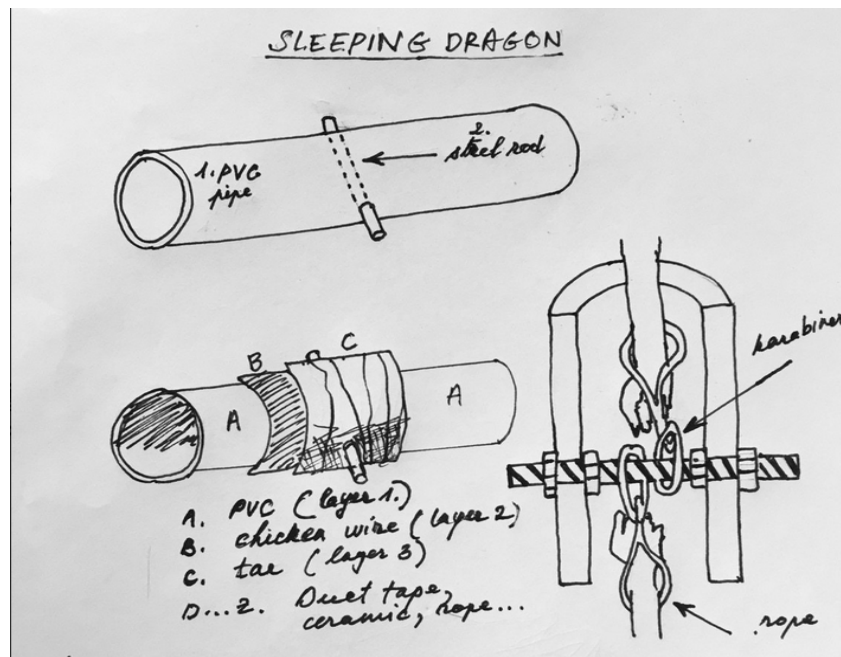 SLEEPING DRAGON
1. PVC
pipe
2.
steel rod
B
C
A
A
karabiner
A. PVC (layer 1.)
B. chicken wire (layer 2)
C. tar (layer 3)
D...Z. Duct tape,
ceramic, rope...
rope